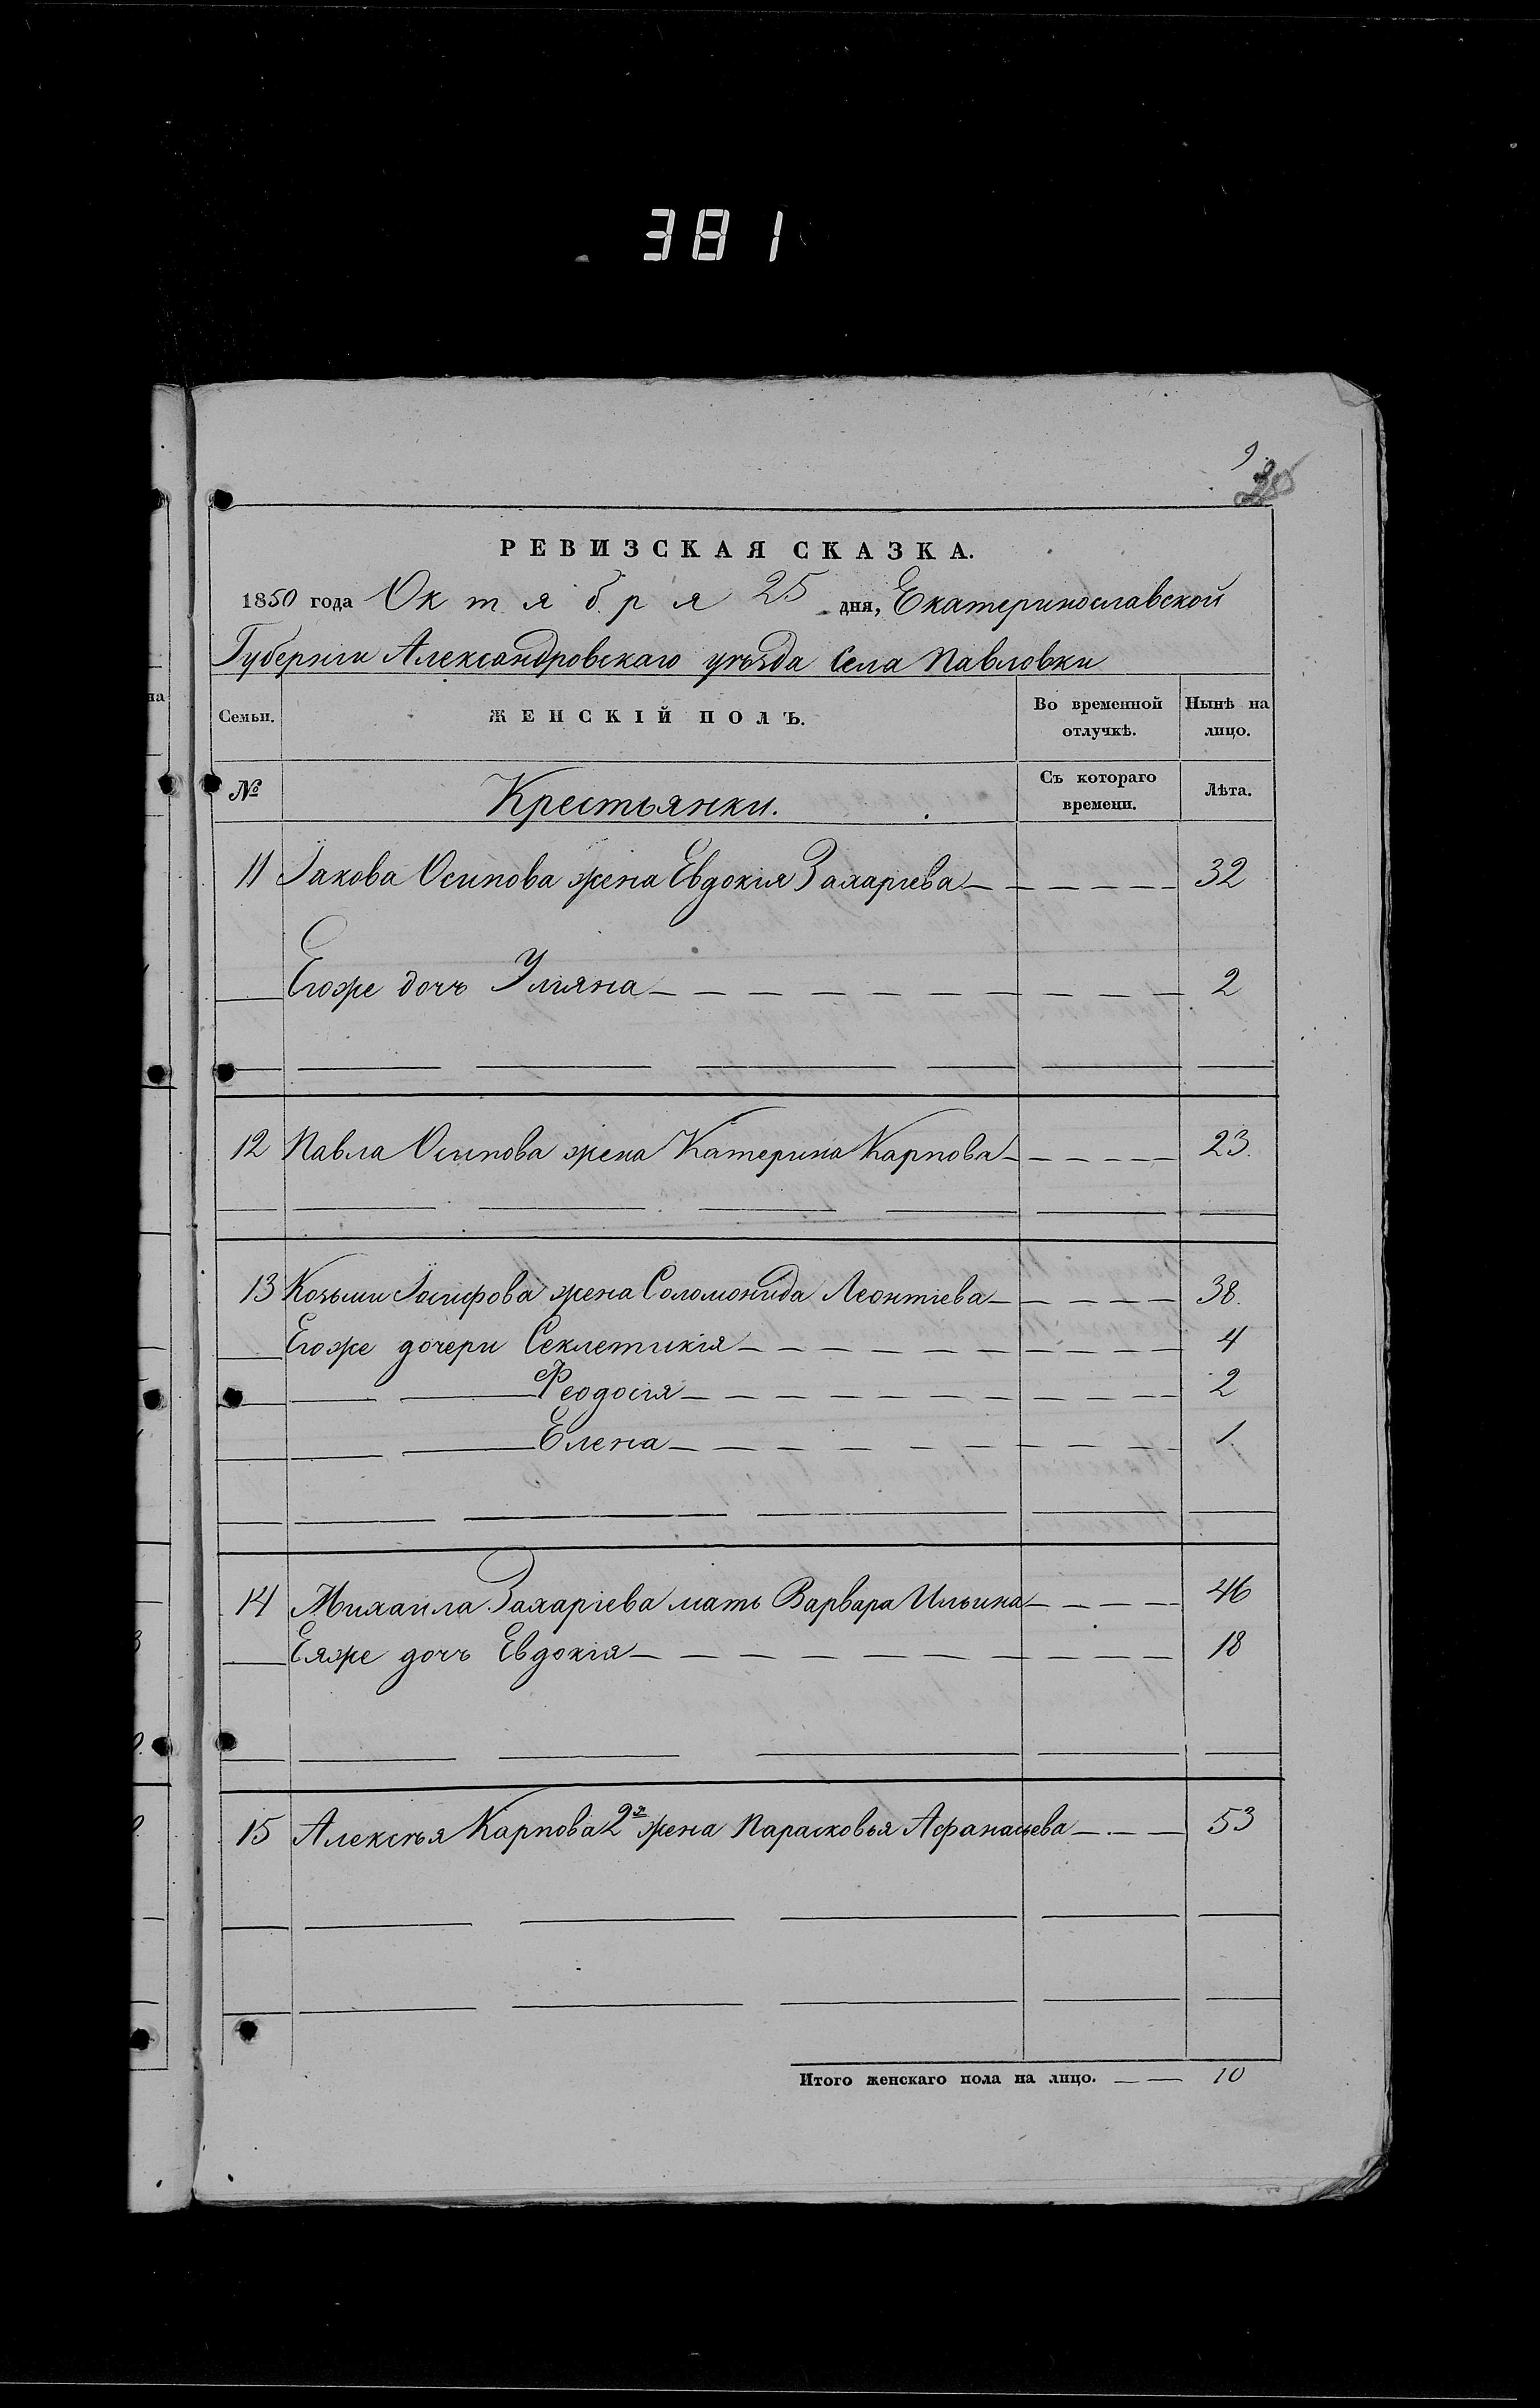 381
9.
РЕВИЗСКАЯ СКАЗКА.
1850 года Октября 25 дня, Екатеринославской
Губерніи Александровскаго уѣзда Села Павловки
Семьи. ЖЕНСКІЙ ПОЛЪ. Во временной отлучкѣ. Нынѣ на лицо.
№ Крестьянки. Съ котораго времени. Лѣта.
11 Іакова Осипова жена Евдокія Захаріева 32
Егоже дочь Уліяна 2
12 Павла Осипова жена Катерина Карпова 23.
13 Козьми Іосифова жена Соломонида Леонтіева 38.
Егоже дочери Секлетикія 4
Феодосія 2
Елена 1.
14 Михаила Захаріева мать Варвара Ильина 46
Еяже дочь Евдокія 18
15 Алексѣя Карпова 2я жена Парасковья Афанасьева 53
Итого женскаго пола на лицо. 10